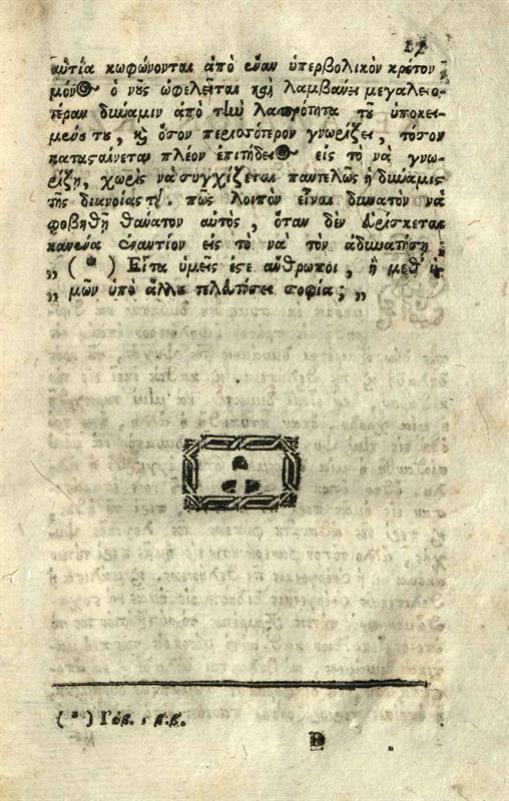 17
αὐτία κωφώνονται ἀπὸ ἕναν ὑπερβολικὸν κρότον;
μόνος ὁ νοῦς ὠφελεῖται καὶ λαμβάνει μεγαλειο-
τέραν δύναμιν ἀπὸ τὴν λαμπρότητα τοῦ ὑποκει-
μένου του, καὶ ὅσον περισσότερον γνωρίζει, τόσον
κατασταίνεται πλέον ἐπιτήδειος εἰς τὸ νὰ γνω-
ρίζῃ, χωρὶς νὰ συγχίζεται παντελῶς ἡ δύναμις
τῆς διανοίας του. πῶς λοιπὸν εἶναι δυνατὸν νὰ
φοβηθῇ θάνατον αὐτὸς, ὅταν δὲν εὑρίσκεται
κανένα ἐναντίον εἰς τὸ νὰ τὸν ἀδυνατήσῃ;
„ (*) Εἶτα ὑμεῖς ἐστὲ ἄνθρωποι, ἢ μεθ᾽ ὑ-
„ μῶν ὑπὸ ἄλλου τελευτήσει σοφία; „
(*) Γόβ. ι β. β.
D